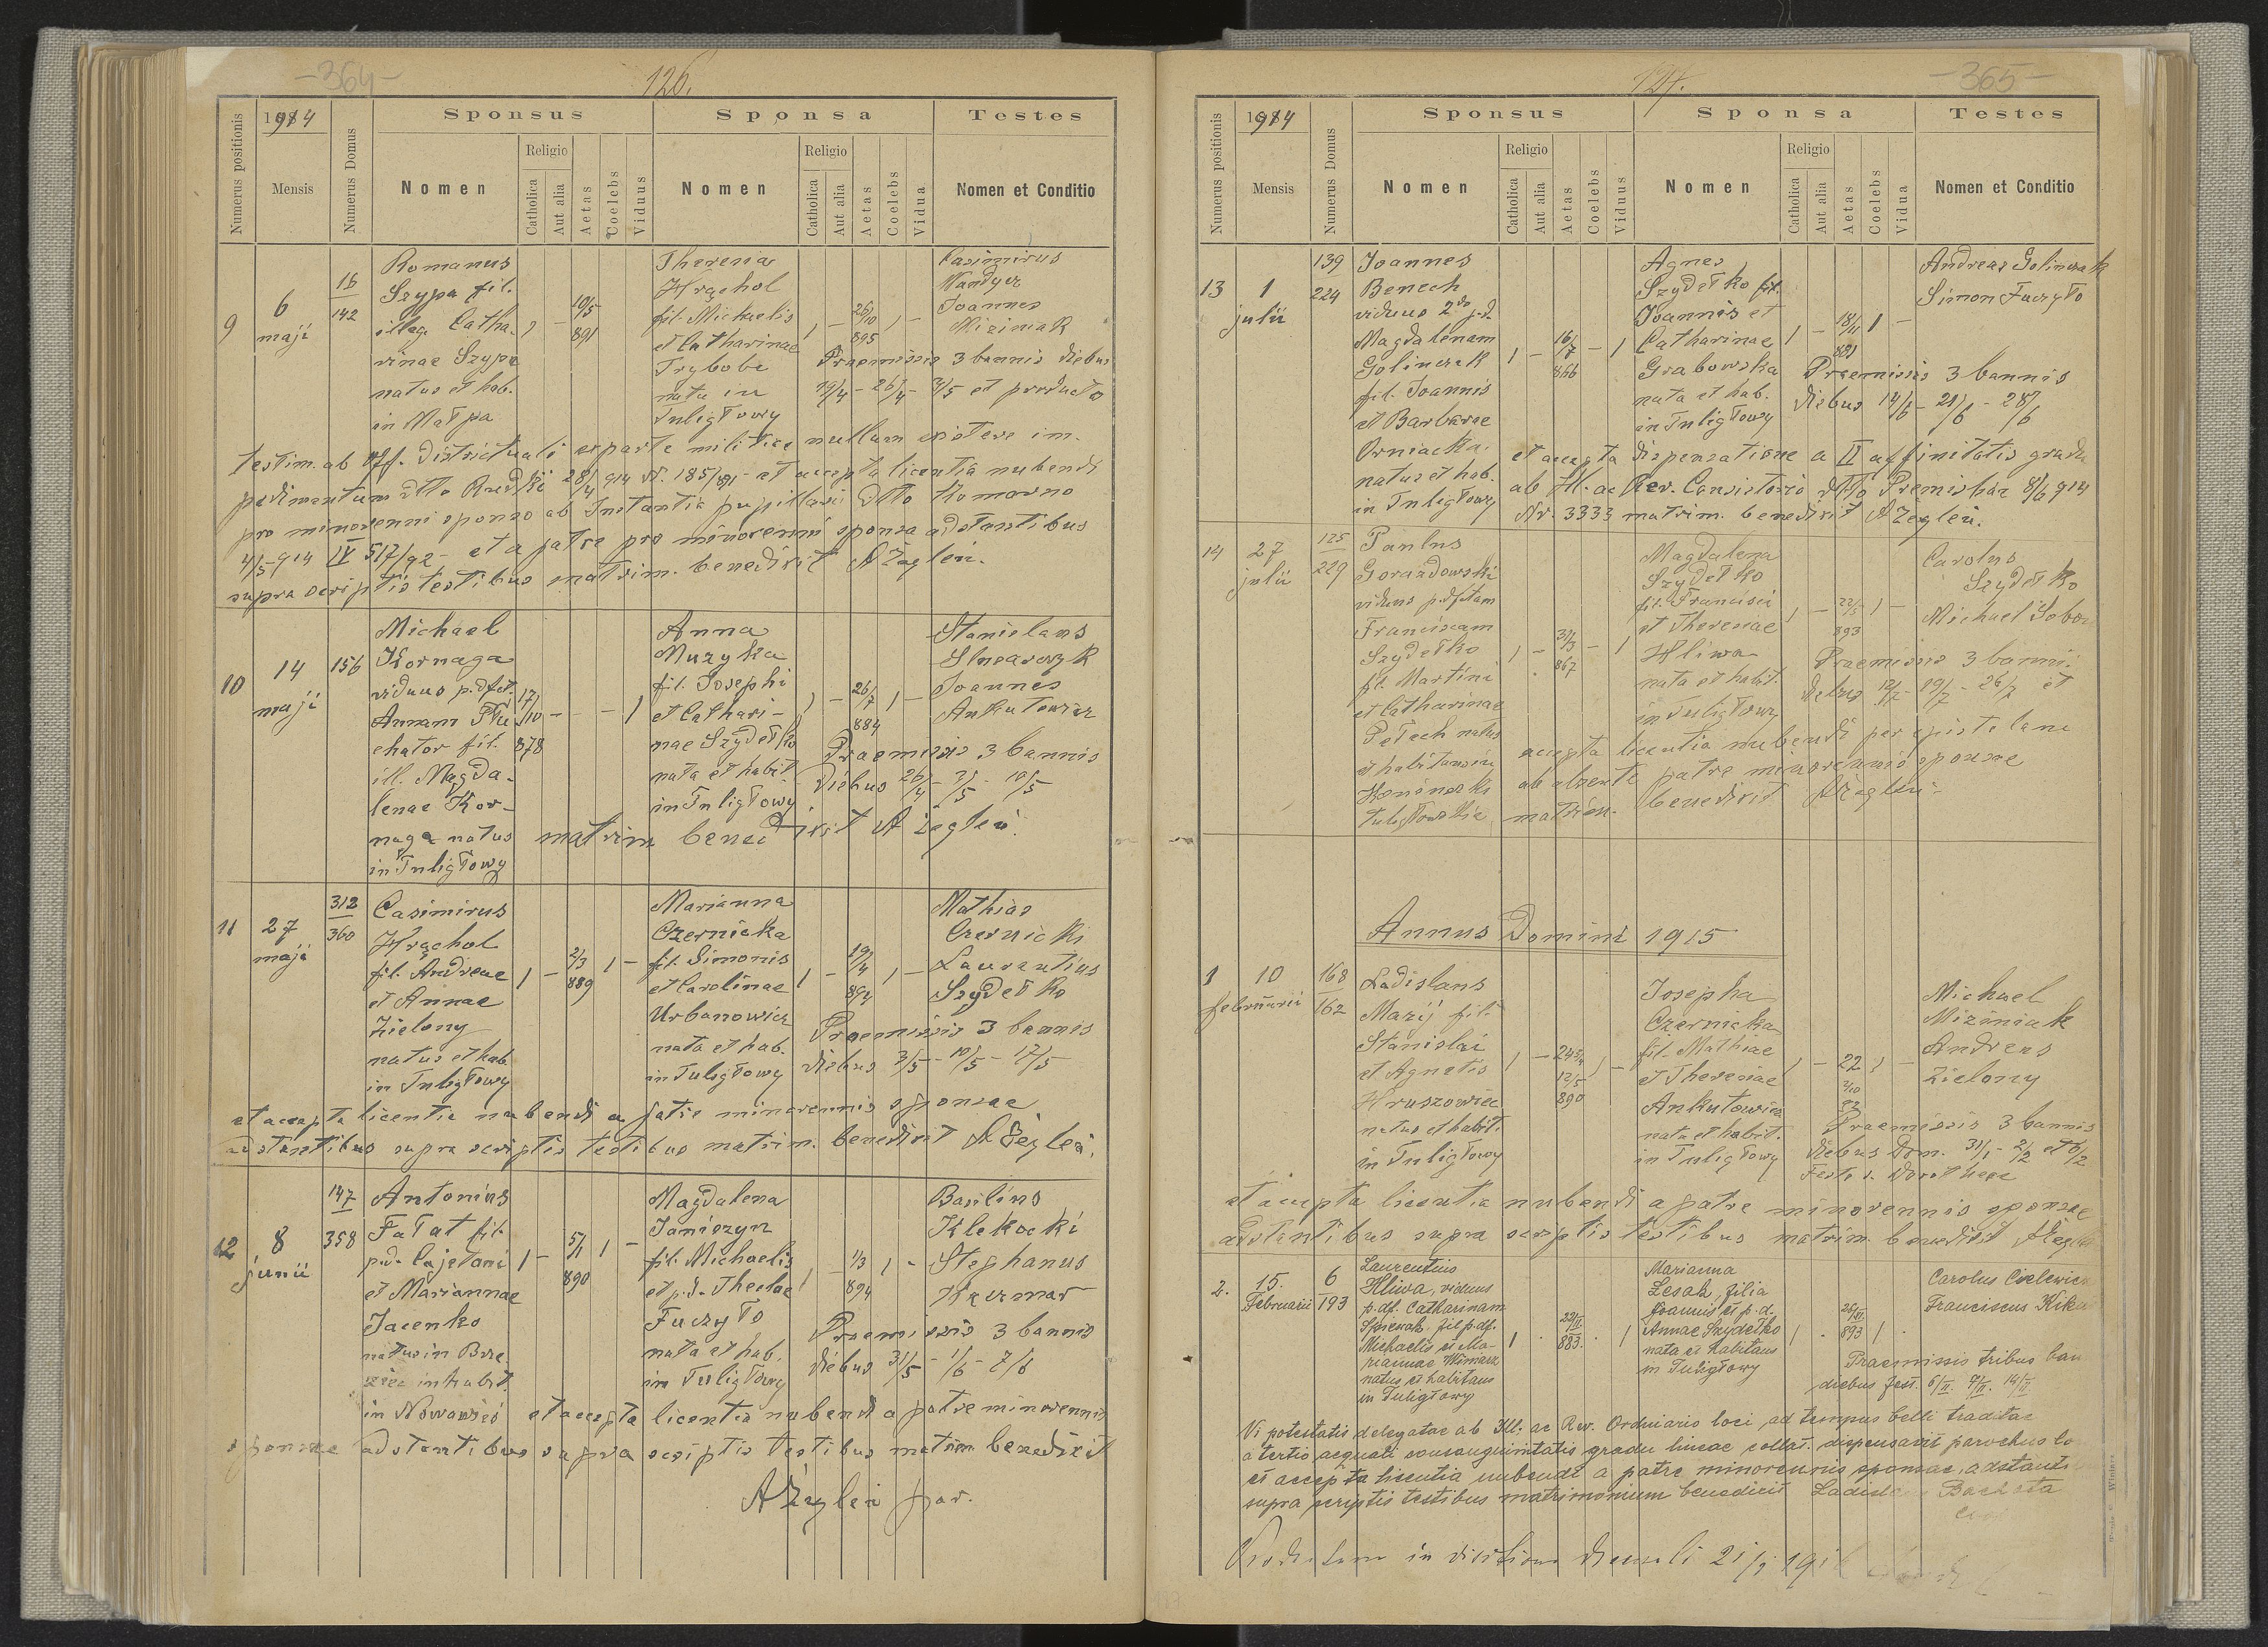 -364-
126.
Numerus positionis
1914
Mensis
Numerus Domus
Sponsus
Nomen
Religio
Catholica
Aut alia
Aetas
Coelebs
Viduus
Sponsa
Nomen
Religio
Catholica
Aut alia
Aetas
Coelebs
Vidua
Testes
Nomen et Conditio
9
6
maji
16
142
Romanus
Szypa fil.
illeg. Catha-
rinae Szypa
natus et hab.
in Małpa
10/5
891
Theresia
Hrachol
fil. Michaelis
et Catharinae
Trybobe
nata in
Tuligłowy
1 - 26/10 1 -
895
Casimirus
Wandycz
Joannes
Miziniak
Praemissis 3 bannis diebus
19/4 - 26/4 - 3/5 et producto
testim. ab Off. Districtuali exparte militiae nullum existere im-
pedimentum dtto Rudki 28/4 914 N. 185/891 - et accepta licentia nubendi
pro minorenni sponso ab Instantia pupillari dtto Komarno
4/5 914 IV 517/92 - et a patre pro minorenni sponsa adstantibus
supra scriptis testibus matrim. benedixit A Żegleń.
10
14
maji
156
Michael
Kornaga
viduus p. dfct.
Annam
chator fil.
ill. Magda-
lenae Kor-
naga natus
in Tuligłowy
17/10 - - - 1
878
Anna
Muzyka
fil. Josephi
et Cathari-
nae Szydełko
nata et habit.
in Tuligłowy
1 - 26/7 1 -
884
Stanislaus
Slusarczyk
Joannes
Ankutowicz
Praemissis 3 bannis
diebus 26/4 - 3/5 - 10/5
matrim benedixit A Żegleń.
11
27
maji
312
360
Casimirus
Hrachol
fil. Andreae
et Annae
Zielony
natus et hab.
in Tuligłowy
1 - 2/3 1 -
889
Marianna
Czernicka
fil. Simonis
et Carolinae
Urbanowicz
nata et hab.
in Tuligłowy
1 - 19/4 1 -
894
Mathias
Czernicki
Laurentius
Szydełko
Praemissis 3 bannis
diebus 3/5 - 10/5 - 17/5
et accepta licentia nubendi a patre minorennis sponsae
adstantibus supra scriptis testibus matrim. benedixit A Żegleń.
12
8
junii
147
358
Antonius
Fałat fil.
p.d. Cajetani
et Mariannae
Jacenko
natus in Brze
ziec inhabit.
in Nowawieś
1 - 5/1 1 -
890
Magdalena
Janiczyn
fil. Michaelis
et p.d. Theclae
Fuczyło
nata et hab.
in Tuligłowy
1 - 1/3 1 -
894
Basilius
Klekocki
Stephanus
Kaczmar
Praemissis 3 bannis
diebus 31/5 - 1/6 - 7/6
et accepta licentia nubendi a patre minorennis
sponsae adstantibus supra scriptis testibus matrim benedixit
A Żegleń par.
-365-
127.
Numerus positionis
1914
Mensis
Numerus Domus
Sponsus
Nomen
Religio
Catholica
Aut alia
Aetas
Coelebs
Viduus
Sponsa
Nomen
Religio
Catholica
Aut alia
Aetas
Coelebs
Vidua
Testes
Nomen et Conditio
13
1
julii
139
224
Joannes
Benech
viduus 2do p.d.
Magdalenam
Golinczak
fil. Joannis
et Barbarae
Orniacka
natus et hab.
in Tuligłowy
1 - 16/7 - 1
866
Agnes
Szydełko fil.
Joannis et
Catharinae
Grabowska
nata et hab.
in Tuligłowy
1 - 18/11 1 -
891
Andreas Golinczak
Simon Fuczyło
Praemissis 3 bannis
diebus 14/6 - 21/6 - 28/6
et accepta dispensatione a II affinitatis gradu
ab Ill. ac Rev. Consistorio dtto Premisliae 8/6 914
Nr. 3333 matrim. benedixit A Żegleń.
14
27
julii
125
229
Paulus
Gorazdowski
viduus p. dfctam
Franciscam
Szydełko
fil. Martini
et Catharinae
Petech natus
et habitans in
Koniuszki
Tuligłowskie
1 - 31/3 - 1
867
Magdalena
Szydełko
fil. Francisci
et Theresiae
Hliwa
nata et habit.
in Tuligłowy
1 - 22/5 1 -
893
Carolus
Szydełko
Michael Sobo
Praemissis 3 bannis
diebus 12/7 - 19/7 - 26/7 et
accepta licentia nubendi per epistolam
ab absente patre minorennis sponsae
matrim. benedixit A Żegleń.
Annus Domini 1915
1
10
februarii
168
162
Ladislaus
Mazij fil.
Stanislai
et Agnetis
Hruszowiec
natus et habit.
in Tuligłowy
1 - 24 1 -
12/5
890
Josepha
Czernicka
fil. Mathiae
et Theresiae
Ankutowicz
nata et habit.
in Tuligłowy
1 - 22 1 -
Michael
Miziniak
Andreas
Zielony
Praemissis 3 bannis
diebus Dom. 31/1 - 2/2 et 6/2
Festo s. Dorotheae
et accepta licentia nubendi a patre minorennis sponsae
adstantibus supra scriptis testibus matrim. benedixit A Żegleń
2.
15.
Februarii
6
193
Laurentius
Hliwa, viduus
p. df. Catharinam
Spiesak, fil p. df.
Michaelis et Ma-
riannae Winiarz
natus et habitans
in Tuligłowy
1 . 22/II . 1
885.
Marianna
Lesak, filia
Joannis et p. d.
Annae Szydełko
nata et habitans
in Tuligłowy
1 . 26/XI 1 .
893
Carolus Cielewicz
Franciscus Kiku
Praemissis tribus ban
diebus fest. 6/II. 7/II. 14/II
Vi potestatis delegatae ab Ill: ac Rev. Ordinario loci ad tempus belli traditae
a tertio aequali consanguinitatis gradu lineae collat. dispensavit parochus lo
et accepta licentia nubendi a patre minorennis sponsae, adstanti
supra scriptis testibus matrimonium benedixit Ladislaus
in visitatione decanali 21/